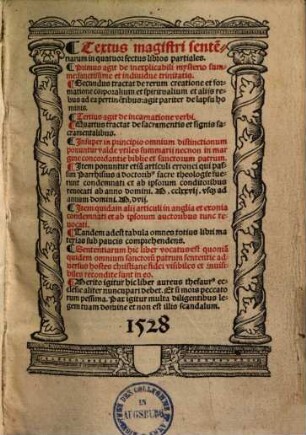 Textus magistri sentē-
narum in quatuor sectus libros partiales.
Primus agit de inexplicabili mysterio sum-
me sanctissime et individue trinitatis.
Secundus tractat de rerum creatione et for-
matione corporalium et spiritualium et aliis re-
bus ad ea pertinētibus: agit pariter de lapsu ho
minis.
Tertius agit de incarnatione verbi.
Quartus tractat de sacramentis et signis sa-
cramentalibus.
Insuper in principio omnium distinctionum
ponuntur valde vtiles summarii necnon in mar
gine concordantie biblie et sanctorum patrum.
Item ponuntur certi articuli erronei qui pas-
sim Parrhisius a doctoribꝰ sacre theologie sue
runt condemnati et ab ipsorum conditoribus
revocati ab anno domini. vsq ad
annum domini.
Item quidam alii articuli in anglia et exonia
condemnati et ab ipsorum auctoribus tunc re-
vocati.
Tandem adest tabula omnem totius libri ma
teriam sub paucis comprehendens.
Sententiarum hic liber vocatur: est quoniā
quidem omnium sanctorū patrum sententie ad
versus hostes christiane fidei visibiles et invisi-
biles recondite sunt in eo.
Merito igitur hic liber aureus thesaurꝰ ec-
clesie aliter nuncupari debet.
rum pessima. Pax igitur multa diligentibus le
gem tuam domine et non est illis scandalum.
1528
IN
AUGSBURG